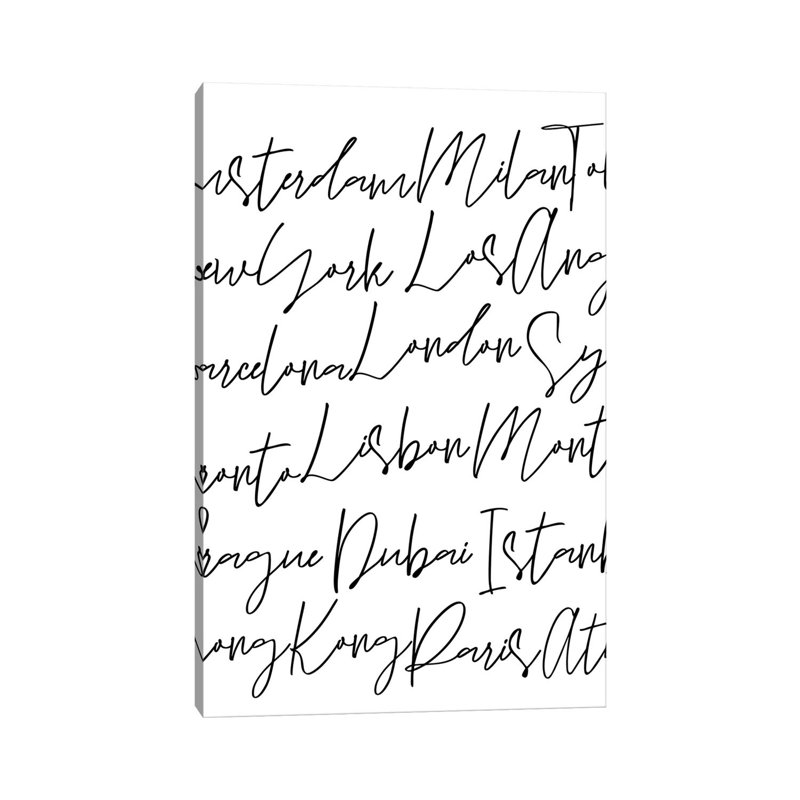 msterdam Milan To
ew York Los Ang
arcelona London Sy
onto Lisbon Mont
rague Dubai Istanb
ong Kong Paris At